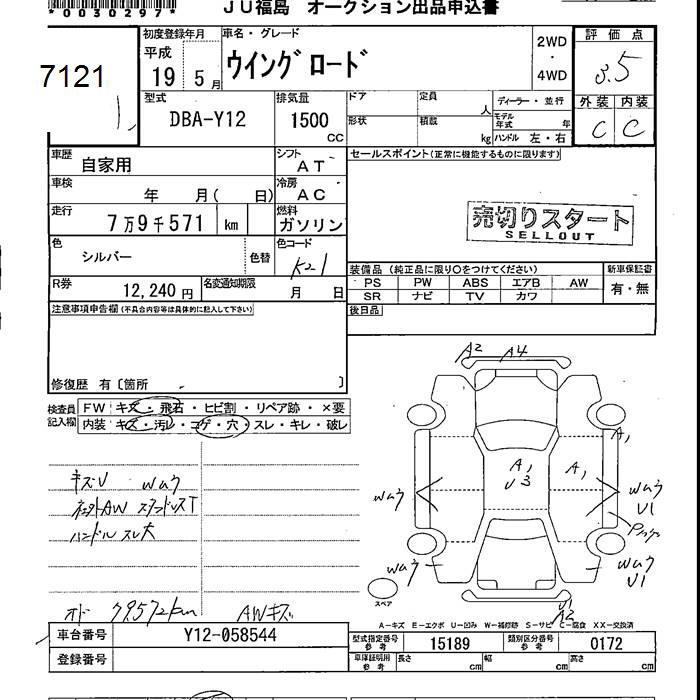 *0030297*
JU福島 オークション出品申込書
7121
初度登録年月
平成
19 5月
車名・グレード
ウイングロード
2WD
・
4WD
評価点
3.5
外装 内装
C C
型式
DBA-Y12
排気量
1500
CC
ドア
定員
人
形状
積載
kg
ディーラー・並行
モデル年式
年
ハンドル 左・右
車歴
自家用
シフト
AT
セールスポイント(正常に機能するものに限ります)
車検
年 月( 日)
冷房
AC
走行
7万9千571 km
燃料
ガソリン
売切りスタート
SELLOUT
色
シルバー
色替
色コード
K21
R券
12,240円
名変通知期限
月 日
装備品 (純正品に限り○をつけてください)
新車保証書
PS PW ABS エアB AW
有・無
SR ナビ TV カワ
注意事項申告欄(不具合内容等は具体的に記入して下さい)
後日品
修復歴 有〔箇所 〕
検査員記入欄
FW キズ・飛石・ヒビ割・リペア跡・×要
内装 キズ・汚レ・コゲ・穴・スレ・キレ・破レ
A2 A4
A1
A1
U3
A1
キズU Wuウ
Wuウ
Wuウ
U1
ハンドルスレ大
Wuウ
Wuウ
U1
スペア
U1
A2
オド 79572km AWキズ
A−キズ E−エクボ U−凹み W−補修跡 S−サビ C−腐食 XX−交換済
車台番号
Y12-058544
型式指定番号
参考
15189
類別区分番号
参考
0172
登録番号
車庫証明用
参考
長さ cm
幅 cm
高さ cm